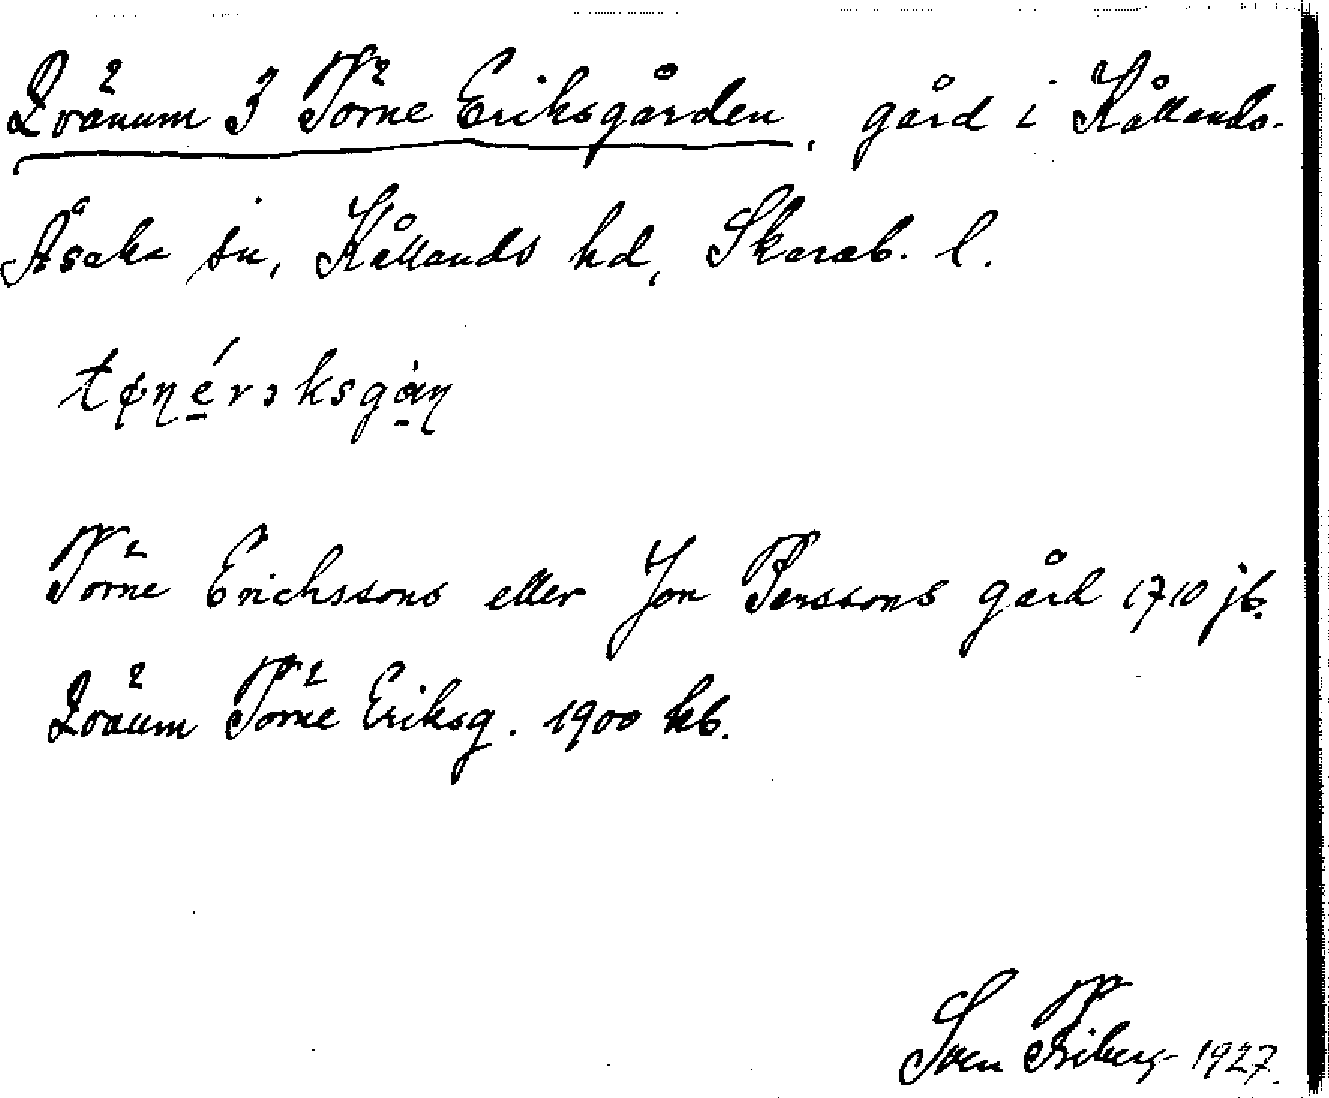 Qvänum 3 Törne Eriksgården, gård i Kållands-
Åsaka sn, Kållands hd, Skarab. l.
tøņérəksgáņ
Törne Erichssons eller Jon Perssons gård 1710 jb.
Qvänum Törne Eriksg. 1900 kb.
Sven Friberg 1927.